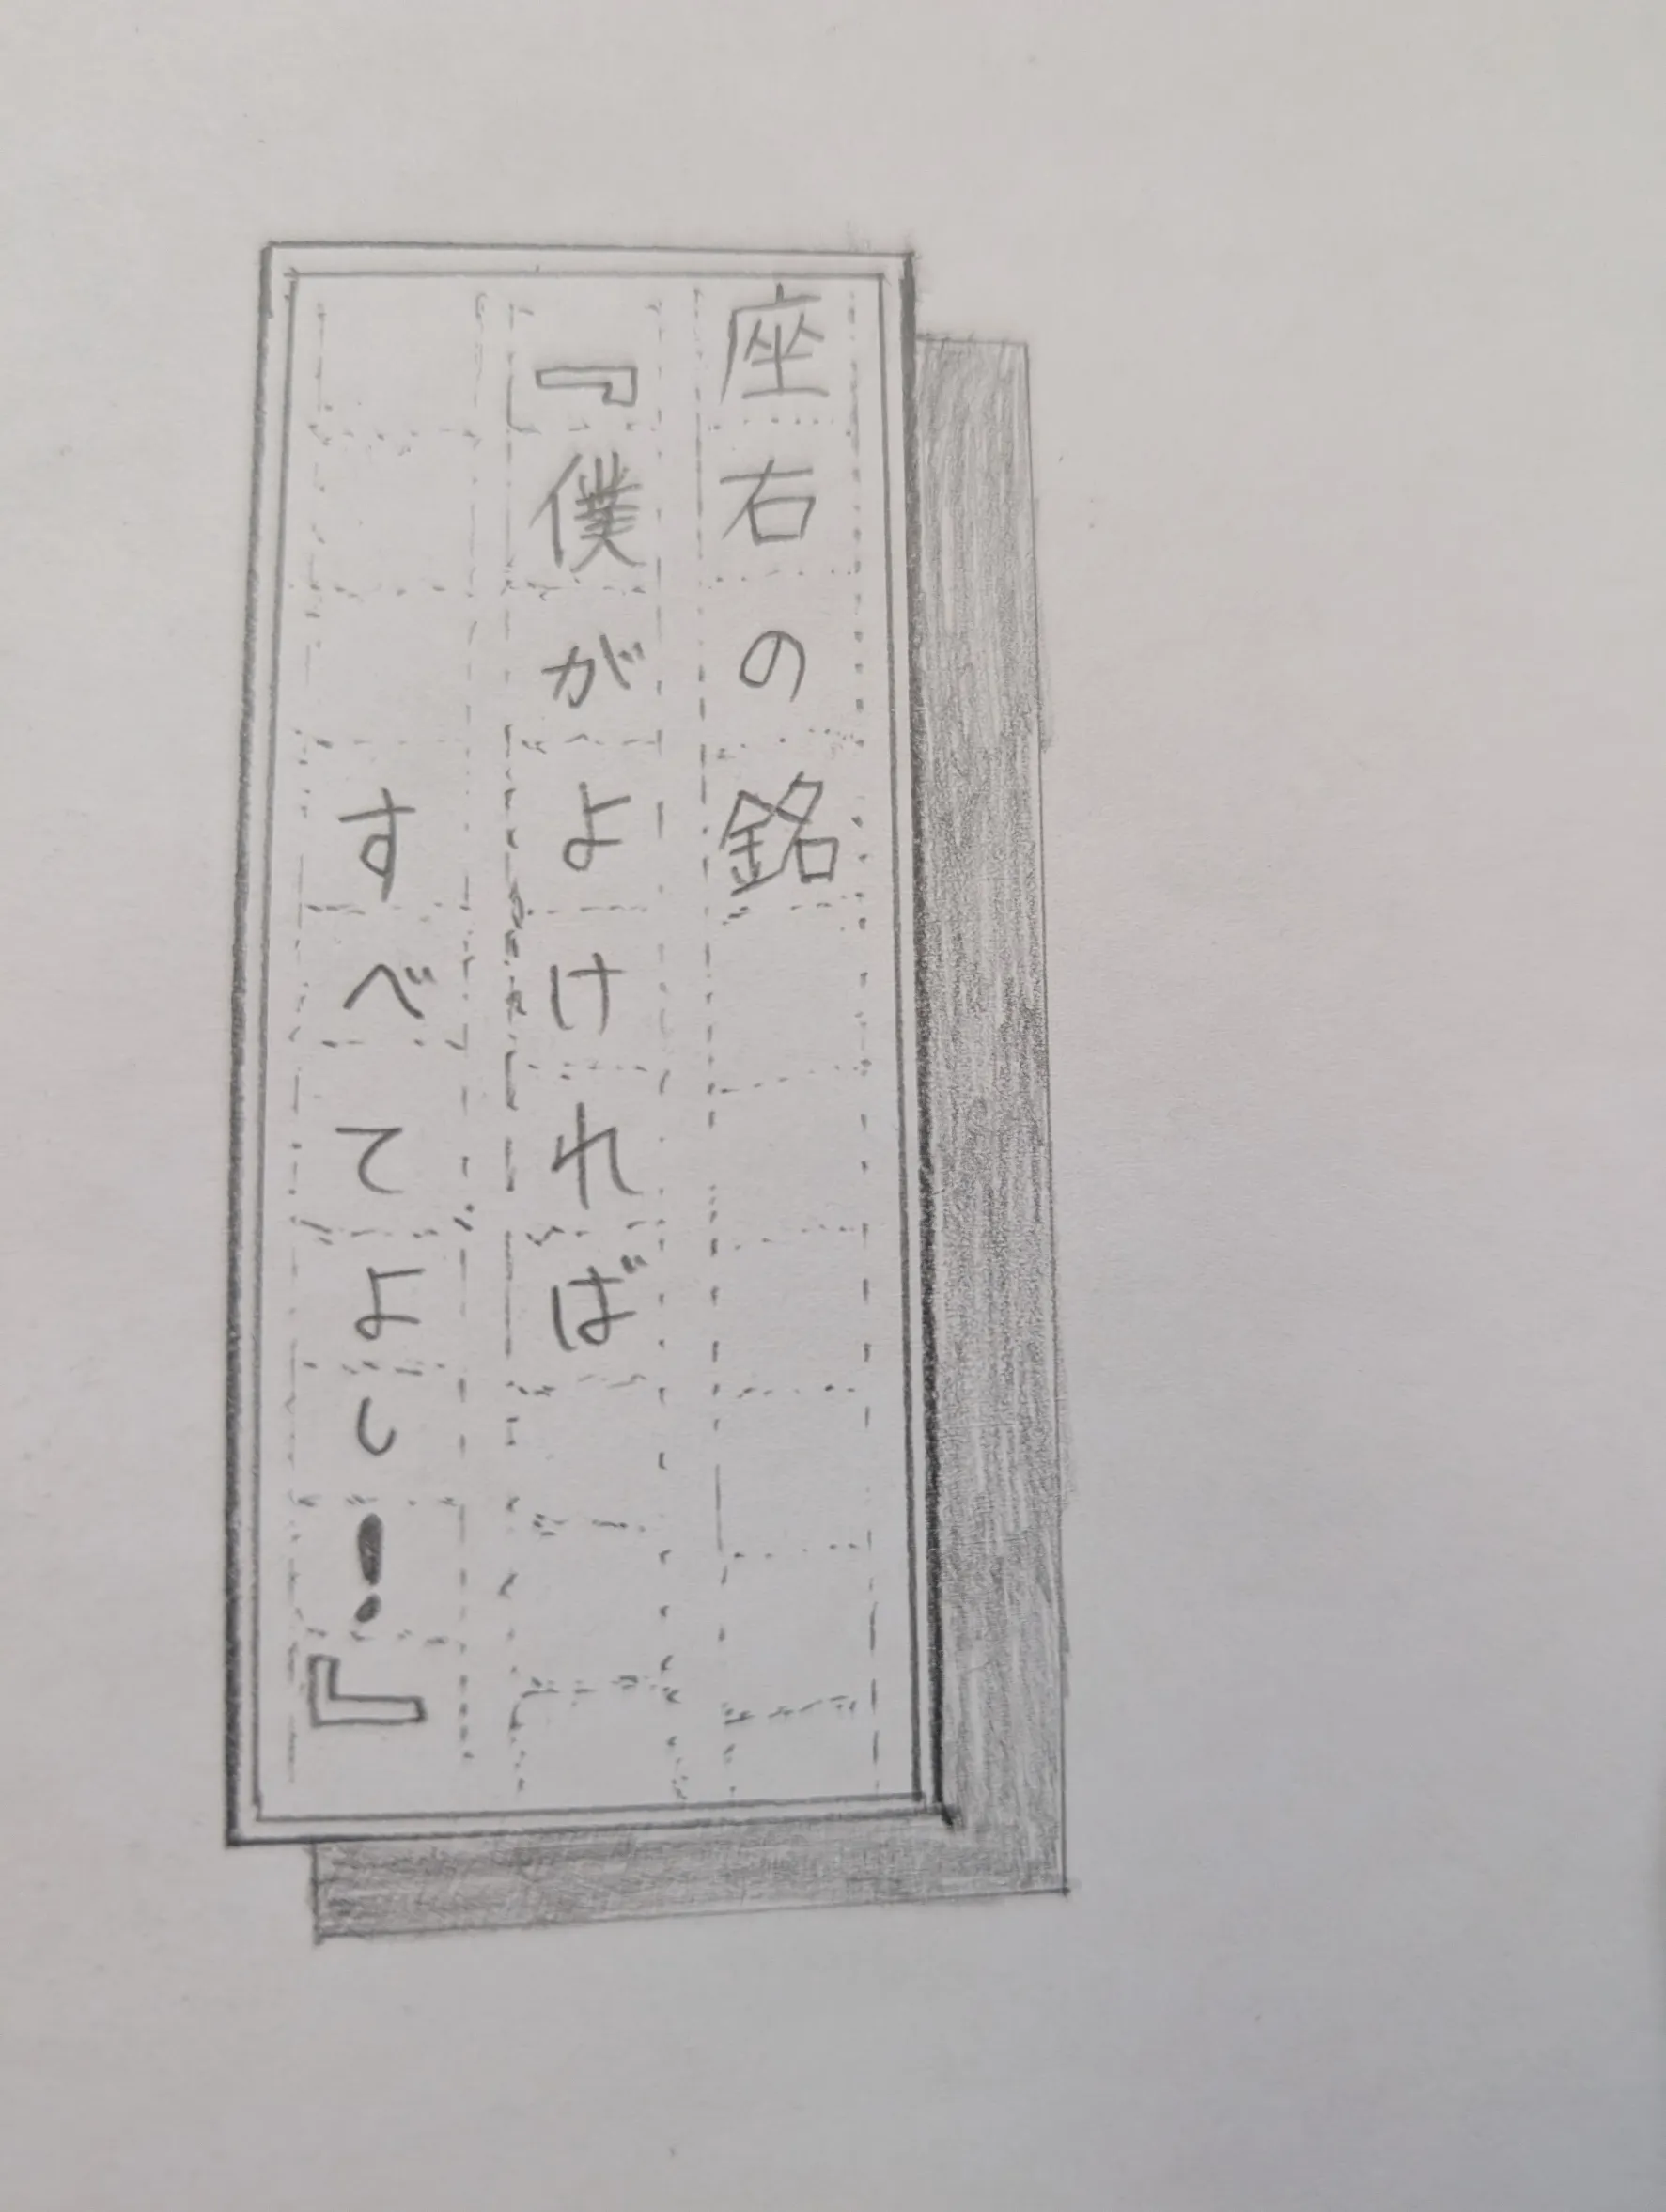 座右の銘
『僕がよければ
すべてよし!』